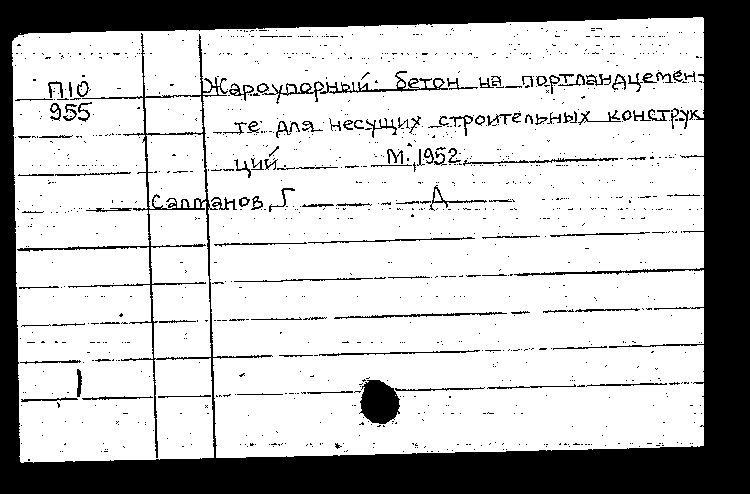 П10 Жароупорный бетон на портландцемен-
955 те для несущих строительных конструк
ций. М., 1952.
Салманов, Г Д